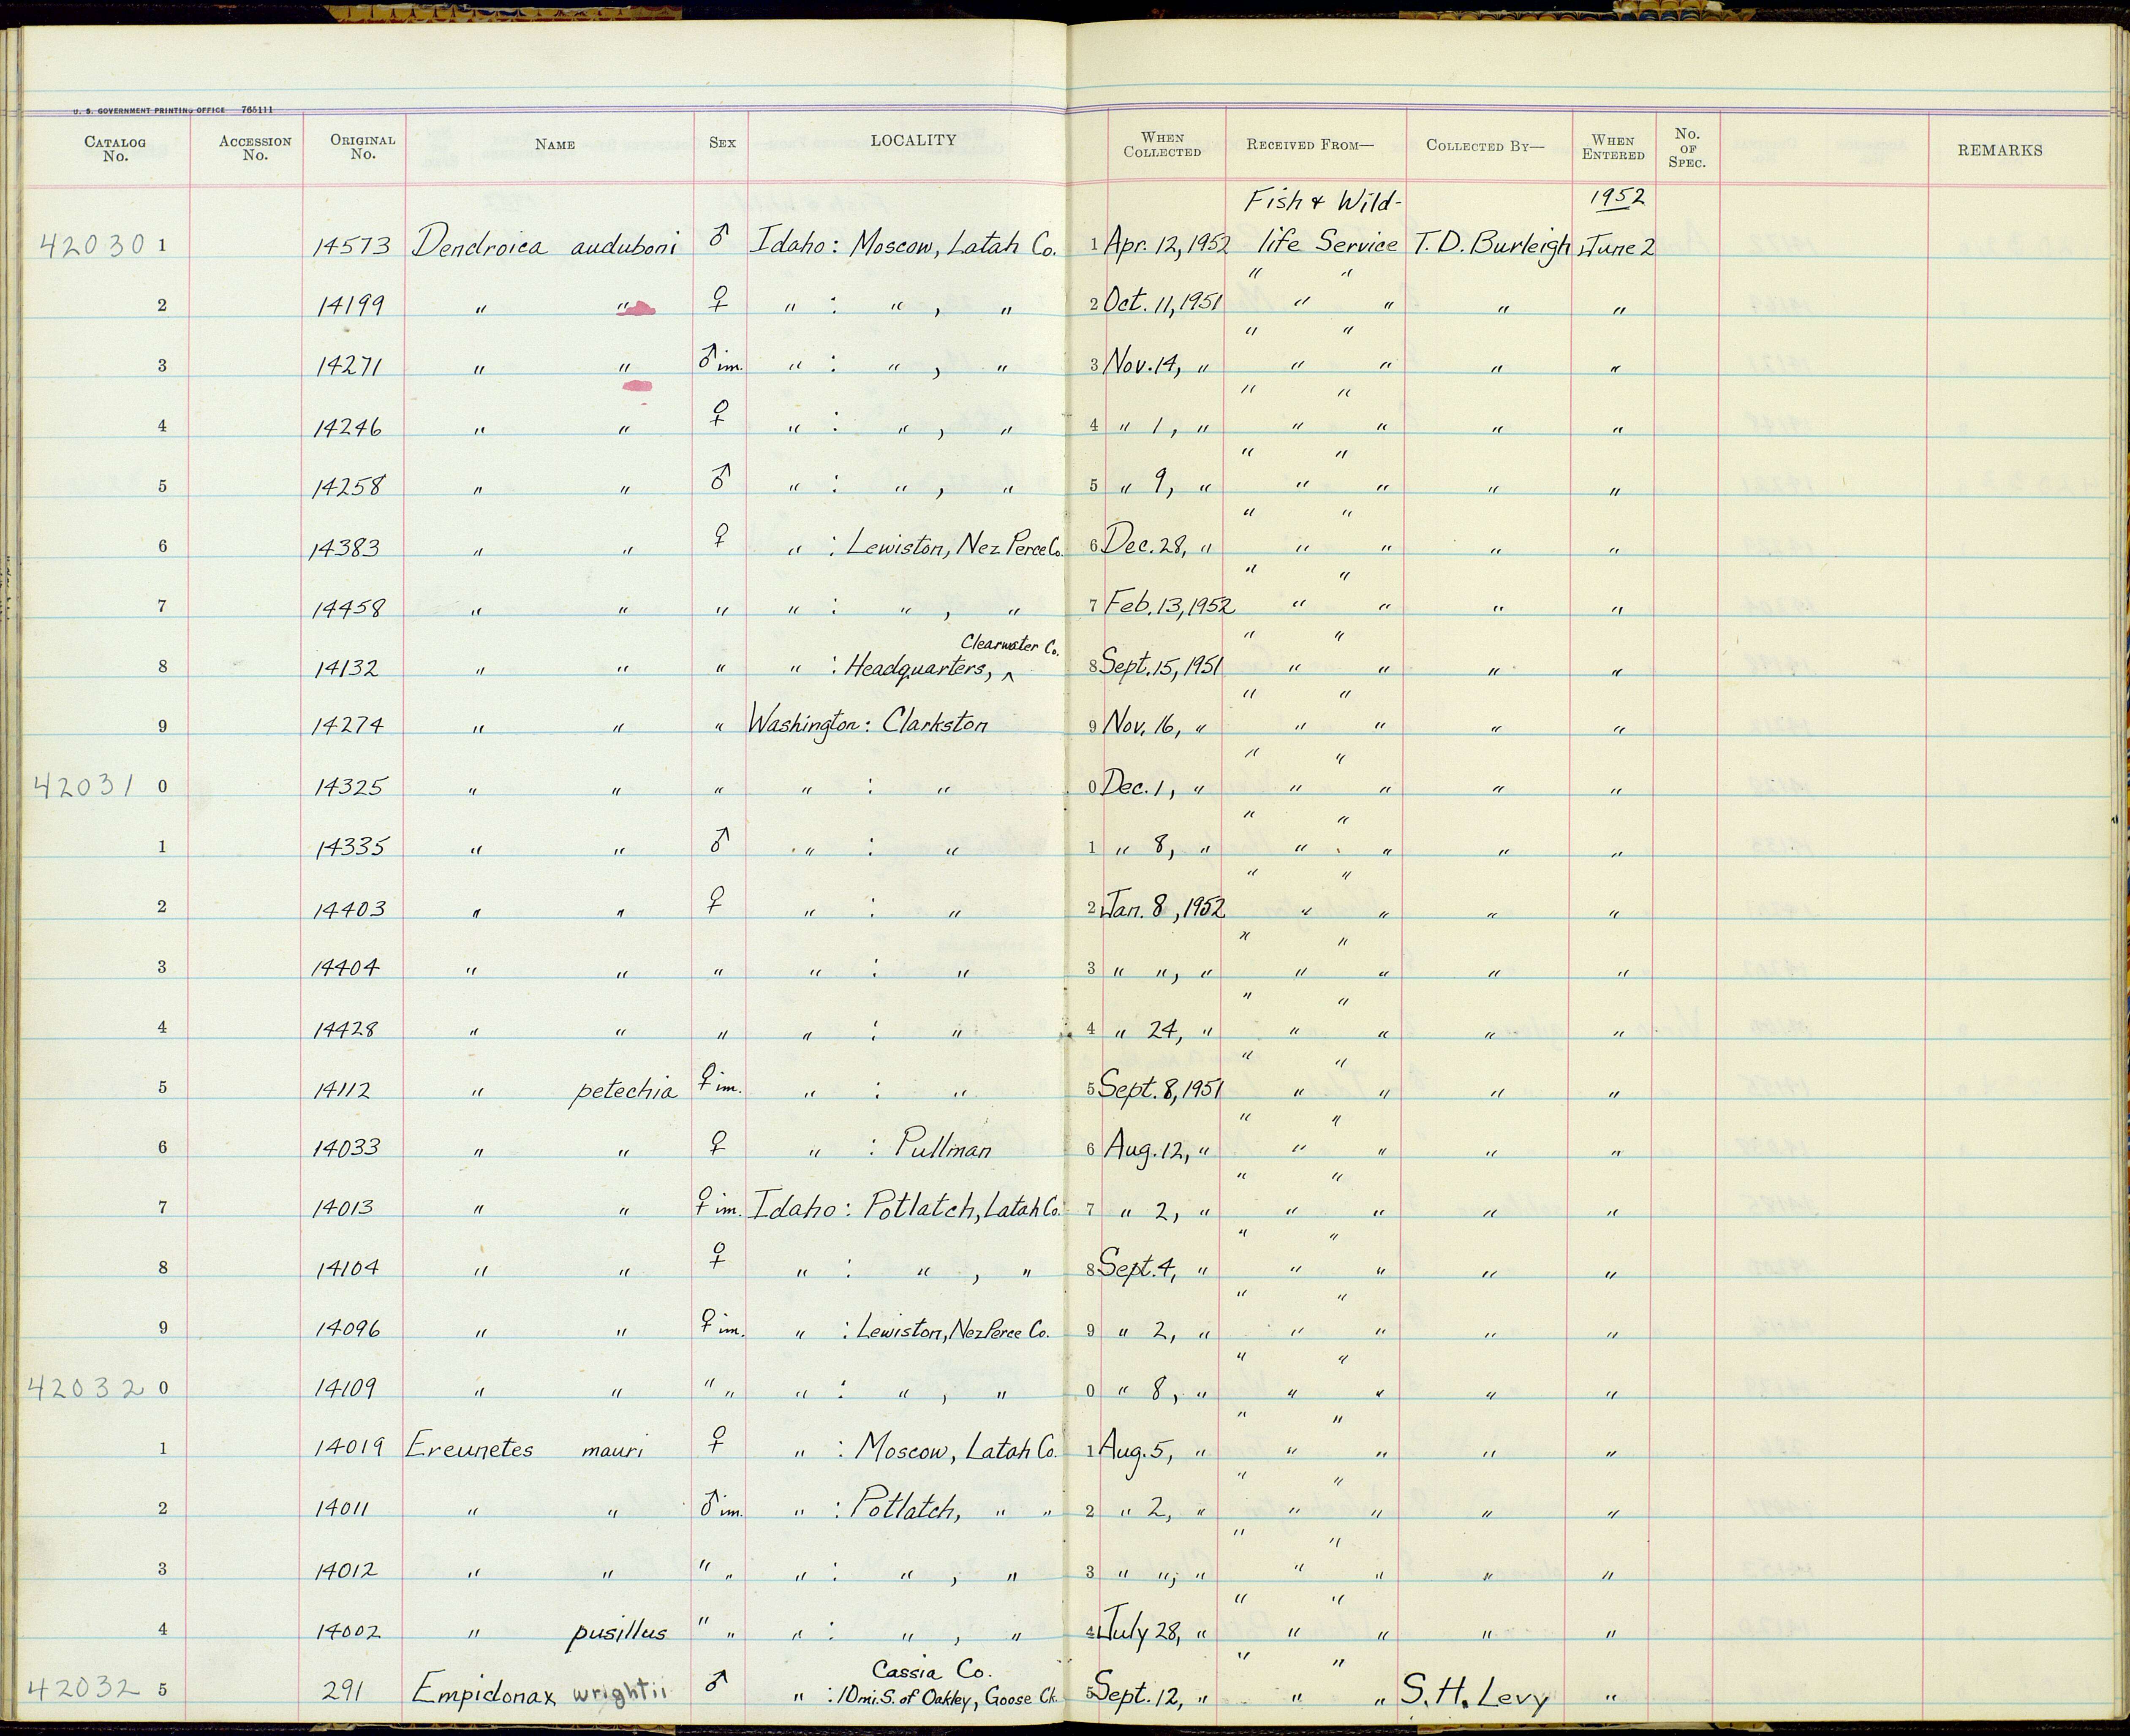 U. S. GOVERNMENT PRINTING OFFICE 765111
CATALOG No. ACCESSION No. ORIGINAL No. NAME SEX LOCALITY WHEN COLLECTED RECEIVED FROM— COLLECTED BY— WHEN ENTERED No. OF SPEC. REMARKS
Fish & Wild- 1952
42030 1 14573 Dendroica auduboni ♂ Idaho: Moscow, Latah Co. 1 Apr. 12, 1952 life Service T. D. Burleigh June 2
" "
2 14199 " " ♀ " : " , " 2 Oct. 11, 1951 " " " "
" "
3 14271 " " ♂ im. " : " , " 3 Nov. 14, " " " " "
" "
4 14246 " " ♀ " : " , " 4 " 1, " " " " "
" "
5 14258 " " ♂ " : " , " 5 " 9, " " " " "
" "
6 14383 " " ♀ " : Lewiston, Nez Perce Co. 6 Dec. 28, " " " " "
" "
7 14458 " " " " : " , " 7 Feb. 13, 1952 " " " "
Clearwater Co. " "
8 14132 " " " " : Headquarters, ^ 8 Sept. 15, 1951 " " " "
" "
9 14274 " " " Washington: Clarkston 9 Nov. 16, " " " " "
" "
42031 0 14325 " " " " : " 0 Dec. 1, " " " " "
" "
1 14335 " " ♂ " : " 1 " 8, " " " " "
" "
2 14403 " " ♀ " : " 2 Jan. 8, 1952 " " " "
" "
3 14404 " " " " : " 3 " ", " " " " "
" "
4 14428 " " " " : " 4 " 24, " " " " "
" "
5 14112 " petechia ♀ im. " : " 5 Sept. 8, 1951 " " " "
" "
6 14033 " " ♀ " : Pullman 6 Aug. 12, " " " " "
" "
7 14013 " " ♀ im. Idaho: Potlatch, Latah Co. 7 " 2, " " " " "
" "
8 14104 " " ♀ " : " , " 8 Sept. 4, " " " " "
" "
9 14096 " " ♀ im. " : Lewiston, Nez Perce Co. 9 " 2, " " " " "
" "
42032 0 14109 " " " " " : " , " 0 " 8, " " " " "
" "
1 14019 Ereunetes mauri ♀ " : Moscow, Latah Co. 1 Aug. 5, " " " " "
" "
2 14011 " " ♂ im. " : Potlatch, " " 2 " 2, " " " " "
" "
3 14012 " " " " " : " , " 3 " ", " " " " "
" "
4 14002 " pusillus " " " : " , " 4 July 28, " " " " "
Cassia Co. " "
42032 5 291 Empidonax wrightii ♂ " : 10 mi. S. of Oakley, Goose Ck. 5 Sept. 12, " " " S. H. Levy "